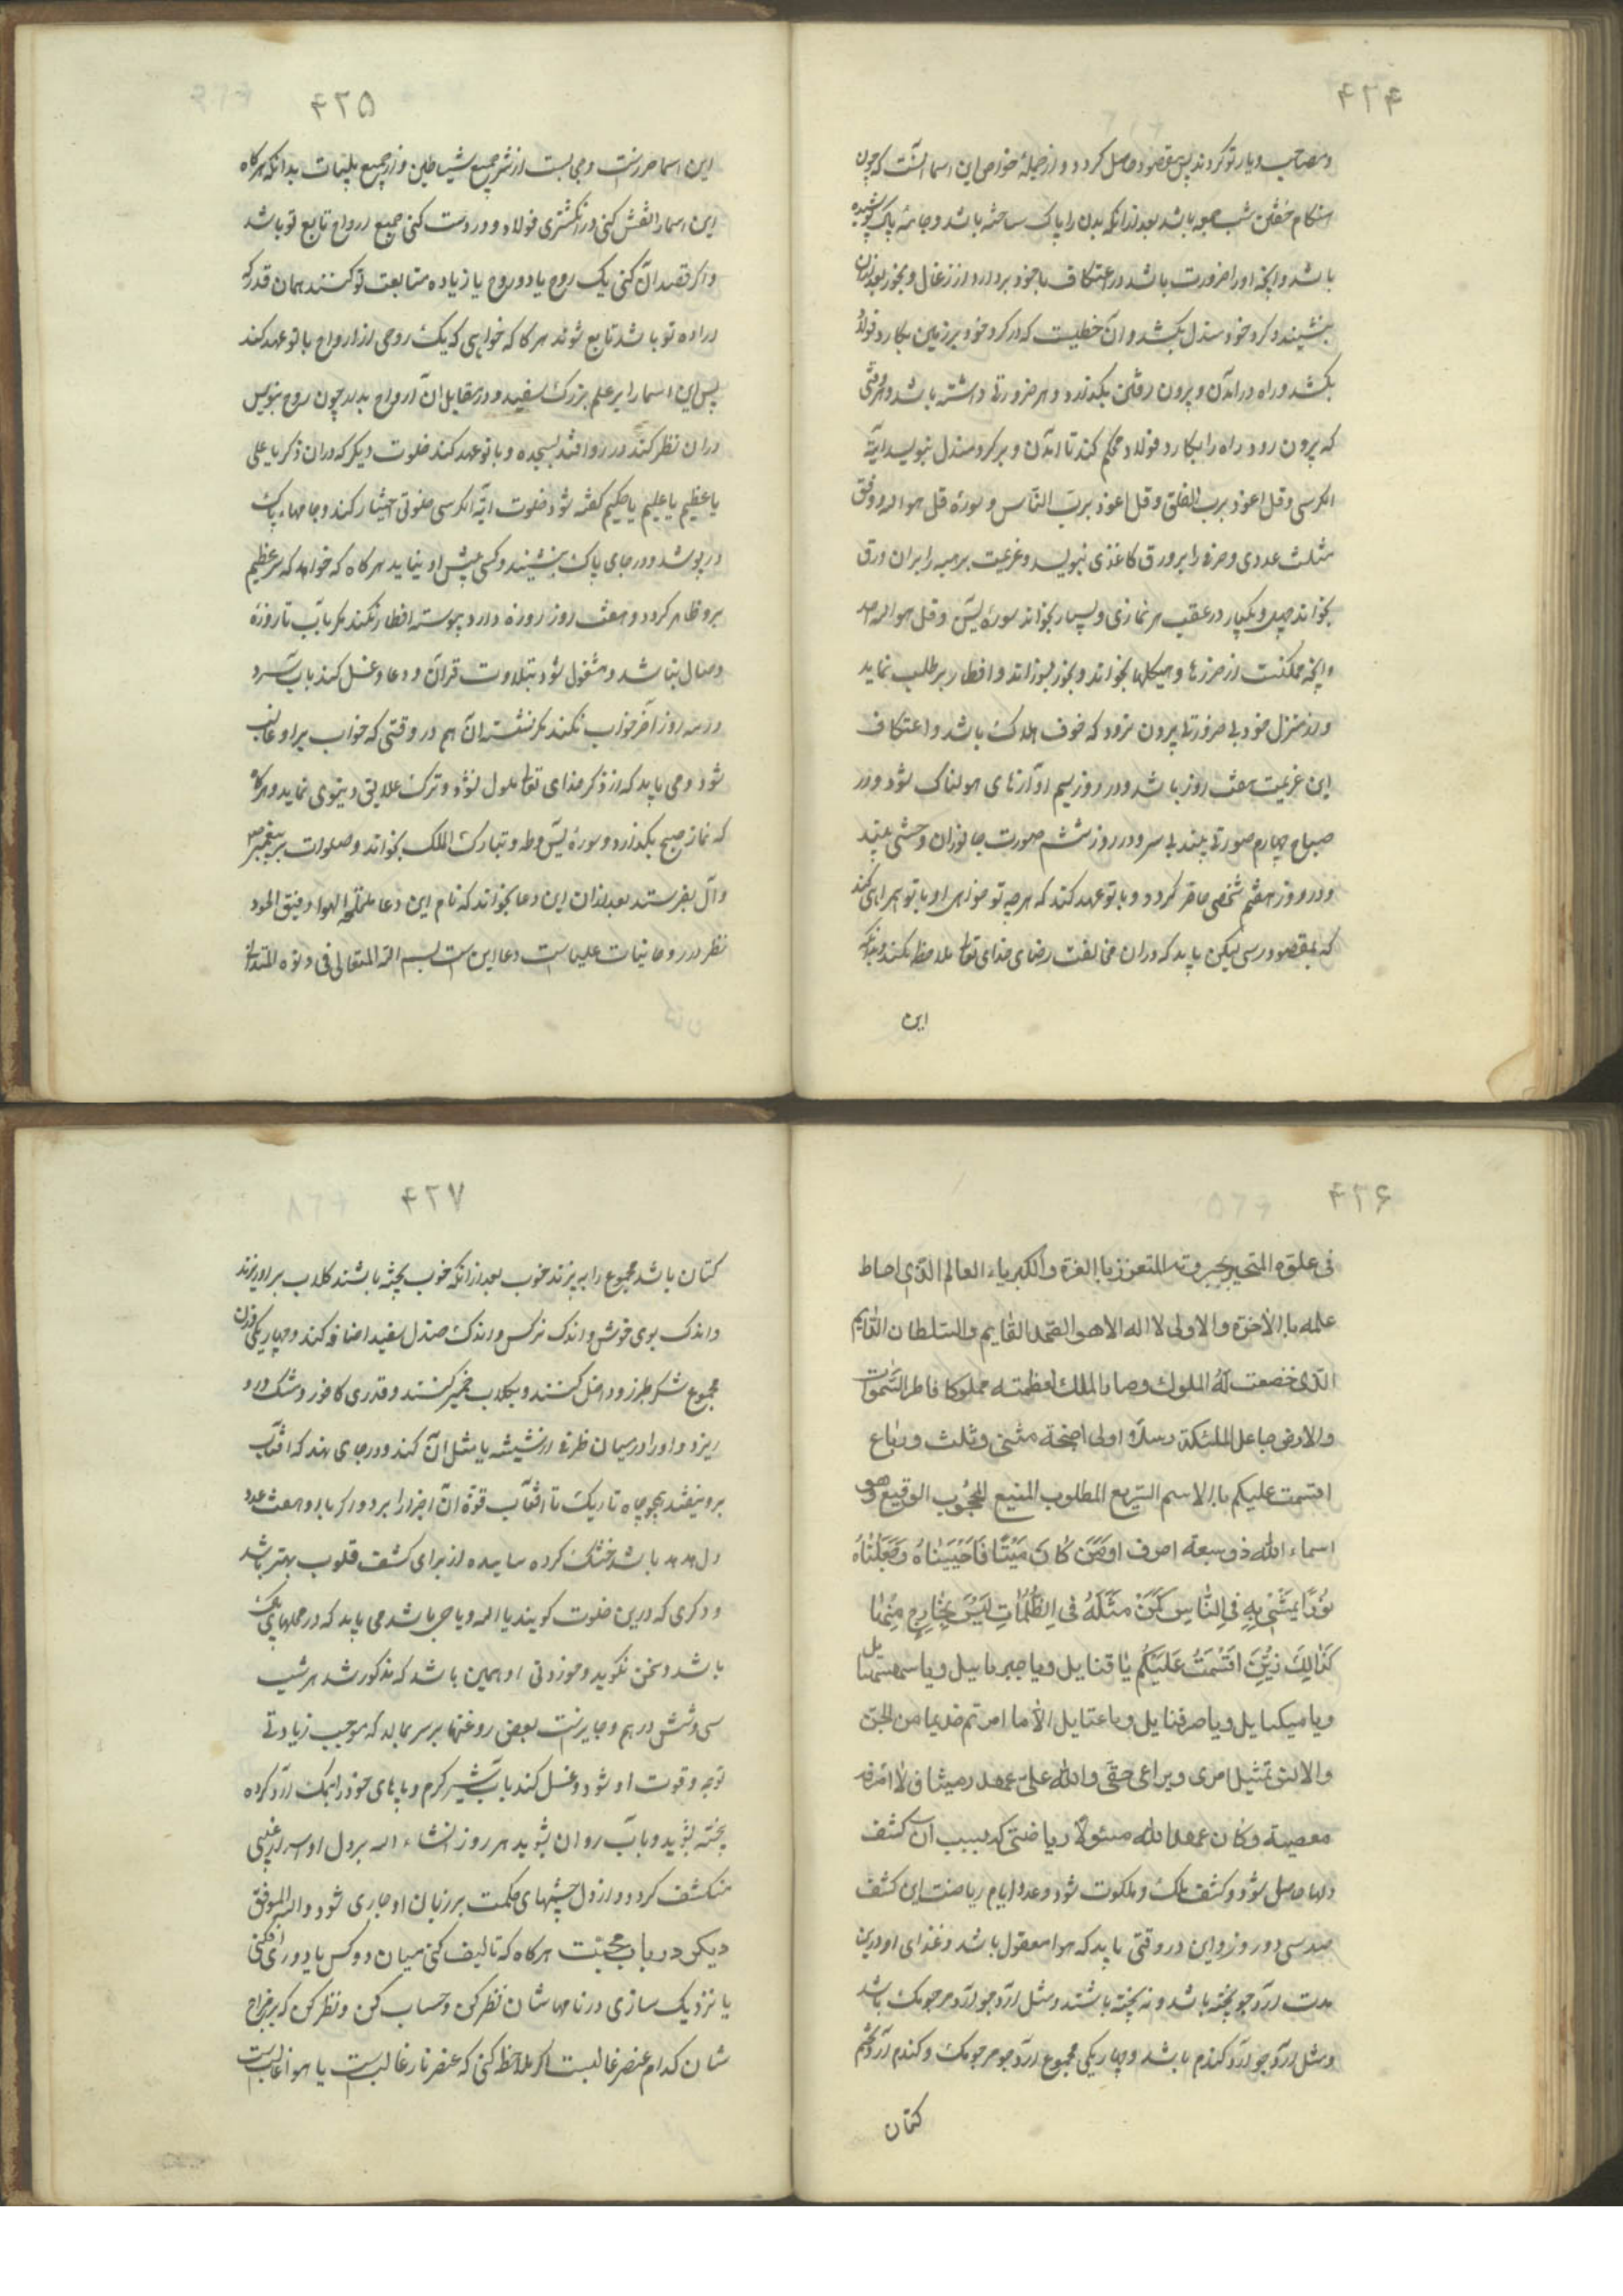 ۴۲۴
و مصاحب و یار تو کردند پس مقصود حاصل کردد و از جمله خواص این اسما آنست که چون
هنکام خفتن شب جمعه باشد بعد از انکه بدن را پاک ساخته باشد و جامهٔ پاک پوشیده
باشد و انچه او را ضرورت باشد در اعتکاف با خود بردارد از زغال و بخور بعد از ان
بنشیند و کرد خود مندل بکشد و ان خطیست که در کرد خود بر زمین بکارد فولاد
بکشد و راه در امدن و بیرون رفتن بکذارد و هر ضرورتی داشته باشد و هر وقتی
که بیرون رود راه را بکارد فولاد محکم کند تا امدن و بر کرد مندل بنویسد ایة
الکرسی و قل اعوذ برب الفلق و قل اعوذ برب الناس و سورهٔ قل هو الله و وفق
مثلث عددی و حرفی را بر ورق کاغذی بنویسد و عزیمت برهیه را بران ورق
بخواند چهل و یکبار در عقب هر نمازی و بسیار بخواند سورهٔ یس و قل هو الله احد
و انچه ممکنست از حرزها و هیکلها بخواند و بخور بسوزاند و افطار بر طلب نماید
و از منزل خود بی ضرورتی بیرون نرود که خوف هلاک باشد و اعتکاف
این عزیمت هفت روز باشد و در روز سیم اوازهای هولناک شود و در
صباح چهارم صورتی چند بی سر و در روز ششم صورت جانوران وحشی بیند
و در روز هفتم شخصی حاضر کردد و با تو عهد کند که هر چه تو خواهی او با تو همراهی کند
که بمقصود رسی لیکن باید که دران مخالفت رضای خدای تعالی ملاحظه نکند و بدانکه
این
۴۲۵
این اسما حرزیست و حجابست از شر جمیع شیاطین و از جمیع بلیات بدانکه هر کاه
این اسما را نقش کنی در انکشتری فولاد و در دست کنی جمیع ارواح تابع تو باشد
و اگر قصد ان کنی یک روح یا دو روح یا زیاده متابعت تو کنند همان قدر که
اراده تو باشد تابع شوند هر کاه که خواهی که یک روحی از ارواح با تو عهد کند
پس این اسما را بر علم بزرک سفید و در مقابل ان ارواح بدار چون روح بنویس
دران نظر کند در رو افتد بسجده و با تو عهد کند خلوت دیکر که دران ذکر یا علی
یا عظیم یا علیم یا حکیم کفته شود خلوت ایة الکرسی خلوتی اختیار کند و جامهاء پاک
در پوشد و در جای پاک بنشیند و کسی پیش او نیاید هر کاه که خواهد که سر عظیم
برو ظاهر کردد و هفت روز روزه دارد پیوسته افطار نکند مکر باب تا روزهٔ
وصال نباشد و مشغول شود بتلاوت قران و دعا و غسل کند باب سرد
در سه روز آخر خواب نکند مکر نشسته ان هم در وقتی که خواب بر او غالب
شود و می باید که از ذکر خدای تعالی ملول نشود و ترک علایق دنیوی نماید و هر کاه
که نماز صبح بکذارد و سورهٔ یس و طه و تبارک الملک بخواند و صلوات بر پیغمبر ص
و آل بفرستد بعد ازان این دعا بخواند که نام این دعا الهوا دقیق الحدود
نظر در روحانیات علیاست دعا این ست بسم الله المتعالی فی دنوه المتدانی
۴۲۶
فی علوّه المتجبر بجبروته المتعزز با العزة والکبریاء العالم الذی احاط
علمه با الآخرة والاولی لا اله الا هو الصمد القایم والسلطان القایم
الذی خضعت له الملوک وصار بالملک لعظمته مملوکا فاطر السموات
والارض جاعل الملئکة رسلا اولی اجنحة مثنی وثلث ورباع
اقسمت علیکم با الاسم السریع المطلوب المنیع المحجوب الوقیع وهو
اسماء الله ذو سبعة احرف اومن کان میتا فاحییناه وجعلنا له
نورا یمشی به فی الناس کمن مثله فی الظلمات لیس بخارج منها
کذلک زین اقسمت علیکم یا قنایل ویا جبرماییل ویا سمهسمائیل
ویا میکیاییل ویا صرفیاییل ویا عتاییل الا ما امرتم خدیما من الجن
والانس تمثیل امری ویراعی حقی والله علی عهد ومیثاق لا امره
معصیة وکان عهد الله مسئولا ریاضتی که بسبب ان کشف
دلها حاصل شود و کشف ملک و ملکوت شود و عدد ایام ریاضت این کشف
صد سی و دو روز و این در وقتی باید که هوا معقول باشد و غذای او درین
مدت آرد جو پخته باشد و نه پخته باشند و مثل ارد جو آرد مرجومک باشد
و مثل آرد جو آرد کندم باشد و چهار یکی مجموع ارد جو و مرجومک و کندم آرد تخم
کتان
۴۲۷
کتان باشد مجموع را بپزند خوب بعد از انکه خوب پخته باشند کلاب بر او ریزند
و اندک بوی خوش و اندک نرکس و اندک صندل سفید اضافه کند و چهار یکی وزن
مجموع شکر طبرزد داخل کنند و بکلاب خمیر کنند و قدری کافور و مشک درو
ریزد و او را در میان ظرفی از شیشه یا مثل ان کند و در جای نهد که افتاب
برو نیفتد همچو چاه تاریک تا افتاب قوة ان اجزا را بر دارد و هفت عدد
دل هدهد باشد خشک کرده ساییده از برای کشف قلوب بهتر باشد
و ذکری که درین خلوت کویند یا الله و یا حی باشد می باید که در محلهای پاک
باشد و سخن نکوید و خوردنی او همین باشد که مذکور شد هر شب
سی و شش درهم و جایز نیست بعضی روغنها بر سر بمالد که موجب زیادتی
توجه و قوت او شود و غسل کند باب شیر کرم و پاهای خود را بنمک ارد کرده
پخته بشوید و باب روان بشوید هر روز انشاء الله بر دل او اسرار غیبی
منکشف کردد و از دل چشمهای حکمت بر زبان او جاری شود والله الموفق
دیکر در باب محبت هر کاه که تالیف کنی میان دو کس یا دوری افکنی
یا نزدیک سازی در نامهاشان نظر کن و حساب کن و نظر کن که بر مزاج
شان کدام عنصر غالبست اگر ملاحظه کنی که عنصر نار غالبست یا هوا غالبست